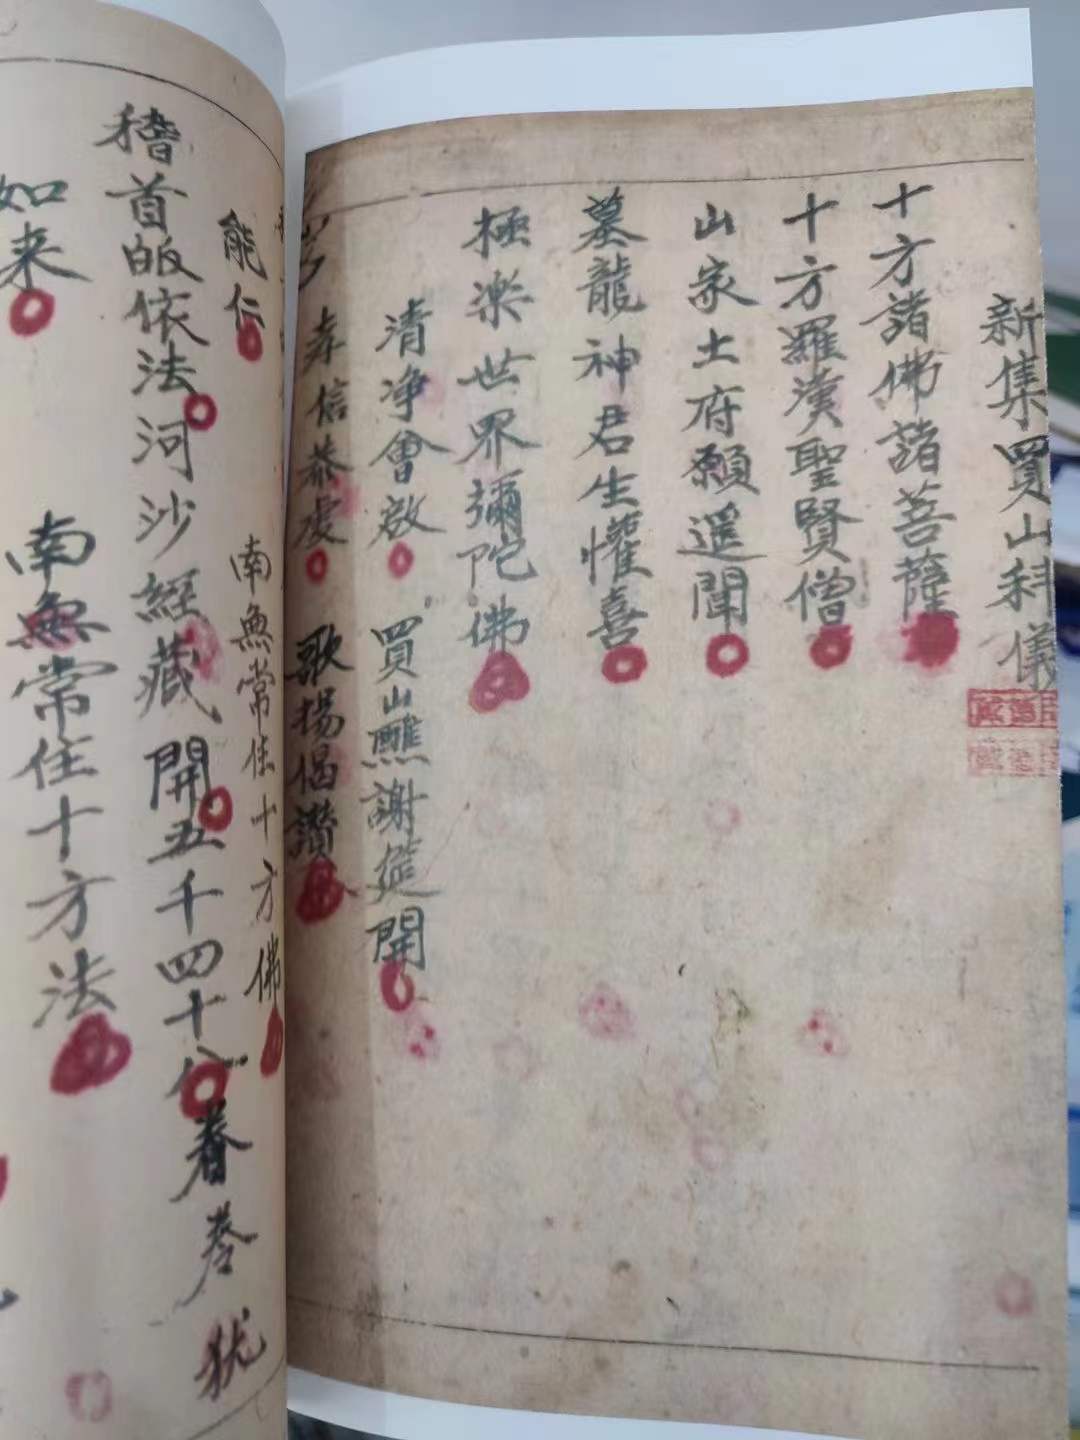 新集買山科儀
十方諸佛諸菩薩
十方羅漢聖賢僧
山家土府願遥聞
墓龍神君生懽喜
極楽世界彌陀佛
清净會啟　買山醮謝筵開
孝信恭虔　歌揚偈讚
南無常住十方佛
能仁
稽首皈依法河沙經藏開五千四十八卷卷犹
如来　南無常住十方法